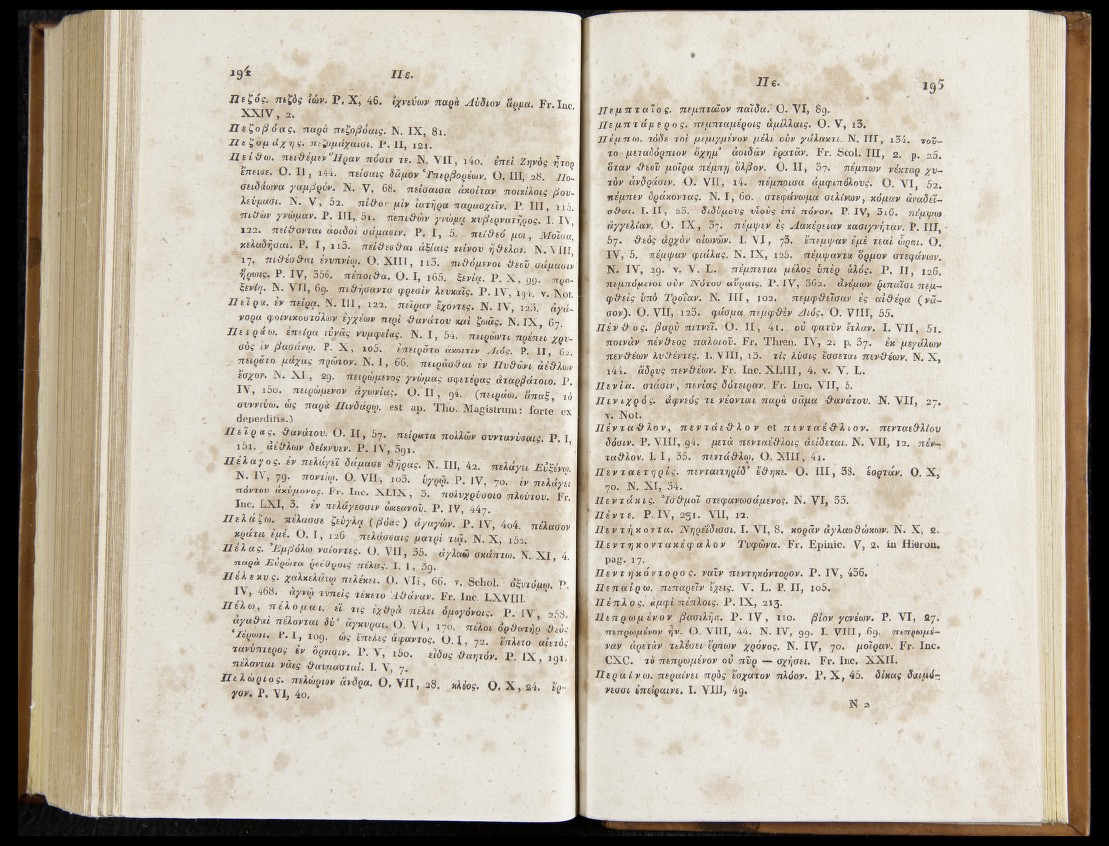 194 Πε.
Πεζός. πεζὸς ἰών. P. X, 46. ἰχνεύων παρὰ Λύδιον ἅρμα. Fr. Inc.
XXIV, 2.
Πεζοβόας. παρὰ πεζοβόαις. N. IX, 81.
Πεζομάχης. πεζομάχαισι. P. II, 121.
Πείθω. πειθέμεν Ἥραν πόσιν τε. N. VII, 140. ἐπεὶ Ζηνὸς ἦτορ
ἔπεισε. O. II, 144. πείσαις δᾶμον Ὑπερβορέων. O. III, 28. Πο-
σειδάωνα γαμβρόν. N. V, 68. πείσαισα ἀκοίταν ποικίλοις βου-
λεύμασι. N. V, 52. πίθον μὶν ἰατῆρα παρασχεῖν. P. III, 115.
πιθὼν γνώμαν. P. III, 51. πεπιθὼν γνώμᾳ κυβερνατῆρος. I. IV,
122. πείθονται ἀοιδοὶ σάμασιν. P. I, 5. πείθεό μοι, Μοῖσα,
κελαδῆσαι. P. I, 113. πείθεσθαι ἀξίαις κείνου ἤθελον. N. VIII,
17. πιθέσθαι ἐνυπνίῳ. O. XIII, 113. πιθόμενοι θεοῦ σάμασιν
ἥρωες. P. IV, 356. πέποιθα. O. I, 165. ξενίᾳ. P. X, 99. προ-
ξενίῃ. N. VII, 69. πιθήσαντα φρεσὶν λευκαῖς. P. IV, 194. v. Not.
Πεῖρα. ἐν πείρᾳ. N. III, 122. πεῖραν ἔχοντες. N. IV, 123. ἀγά-
νορα φοινικοστόλων ἐγχέων περὶ θανάτου καὶ ζωᾶς. N. IX, 67.
Πειράω. ἐπείρα εὐνᾶς νυμφείας. N. I, 54. πειρῶντι πρέπει χρυ-
σὸς ἐν βασάνῳ. P. X, 105. ἐπειρᾶτο ἄκοιτιν Διός. P. II, 62.
πειρᾶτο μάχας πρῶτον. N. I, 66. πειρᾶσθαι ἐν Πυθῶνι ἀέθλων
ἔσχον. N. XI, 29. πειρώμενος γνώμας σφετέρας ἀταρβάτοιο. P.
IV, 150. πειρώμενον ἀγωνίας. O. II, 94. (πειράω. ἅπαξ, τὸ
συννεύω. ὡς παρὰ Πινδάρῳ, est ap. Tho. Magistrum: forte ex
deperditis.)
Πεῖρας. θανάτου. O. II, 57. πείρατα πολλῶν συντανύσαις. P. I,
151. ἀέθλων δείκνυεν. P. IV, 391.
Πέλαγος. ἐν πελάγεϊ δάμασε θῆρας. N. III, 42. πελάγει Εὐξένῳ.
N. IV, 79. ποντίῳ. O. VII, 103. ὑγρῷ. P. IV, 70. ἐν πελάγει
πόντου ἀκύμονος. Fr. Inc. XLIX, 3. πολυχρύσοιο πλούτου. Fr.
Inc. LXI, 3. ἐν πελάγεσσιν ὠκεανοῦ. P. IV, 447.
Πελάζω. πέλασσε ζεύγλᾳ (βόας) ἀγαγών. P. IV, 404. πέλασον
κράτει ἐμέ. O. I, 126 πελάσσαις ματρὶ τεᾷ. N. X, 152.
Πέλας. Ἐμβόλῳ ναίοντες. O. VII, 35. ἀγλαῷ σκάπτῳ. N. XI, 4.
παρὰ Εὐρώτα ῥεέθροις πέλας. I. I, 39.
Πέλεκυς. χαλκελάτῳ πελέκει. O. VII, 66. v. Schol. ὀξυτόμῳ. P.
IV, 468. ἁγνῷ τυπεὶς τέκετο Ἀθάναν. Fr. Inc. LXVIII.
Πέλω, πέλομαι. εἴ τις ἔχθρα πέλει ὁμογόνοις. P. IV, 258.
ἀγαθαὶ πέλονται δύ' ἄγκυραι. O. VI, 170. πέλοι ὀρθωτὴρ θεὸς
Ἱέρωνι. P. I, 109. ὡς ἔπελες ἄφαντος. O. I, 72. ἔπλετο αἰετὸς
τανύπτερος ἐν ὄρνισιν. P. V, 150. εἶδος θαητόν. P. IX, 191.
πέλονται νᾶες θαυμασταί. I. V, 7.
Πελώριος. πελώριον ἄνδρα. O. VII, 28. κλέος. O. X, 24. ἔρ-
γον. P. VI, 40.
Πε. 195
Πεμπταῖος. πεμπταῖον παῖδα. O. VI, 89.
Πεμπτάμερος. πεμπταμέροις ἁμίλλαις. O. V, 13.
Πέμπω. τόδε τοὶ μεμιγμένον μέλι σὺν γάλακτι. N. III, 134. τοῦ-
το μεταδόρπιον ὄχημ' ἀοιδᾶν ἐρατᾶν. Fr. Scol. III, 2. p. 25.
ὅταν θεοῦ μοῖρα πέμπῃ ὄλβον. O. II, 37. πέμπων νέκταρ χυ-
τὸν ἀνδράσιν. O. VII, 14. πέμποισα ἀμφιπόλους. O. VI, 52.
πέμπεν δράκοντας. N. I, 60. στεφάνωμα σελίνων, κόμαν ἀναδεῖ-
σθαι. I. II, 23. διδύμους υἱοὺς ἐπὶ πόνον. P. IV, 316. πέμψω
ἀγγελίαν. O. IX, 37. πέμψεν ἐς Λακέρειαν κασιγνήταν. P. III,
57. θεὸς ἀρχὸν οἰωνῶν. I. VI, 73. ἔπεμψαν ἐμὲ τεαὶ ὧραι. O.
IV, 5. πέμψαν φιάλας. N. IX, 125. πέμψαντα ὅρμον στεφάνων.
N. IV, 29. v. V. L. πέμπεται μέλος ὑπὲρ ἁλός. P. II, 126.
πεμπόμενοι σὺν Νότου αὔραις. P. IV, 362. ἀνέμων ῥιπαῖσι πεμ-
φθεὶς ὑπὸ Τροΐαν. N. III, 102. πεμφθεῖσαν ἐς αἰθέρα (νᾶ-
σον). O. VII, 123. φάσμα πεμφθὲν Διός. O. VIII, 55.
Πένθος. βαρὺ πιτνεῖ. O. II, 41. οὐ φατὸν ἔτλαν. I. VII, 51.
ποινὰν πένθεος παλαιοῦ. Fr. Thren. IV, 2. p. 37. ἐκ μεγάλων
πενθέων λυθέντες. I. VIII, 13. τίς λύσις ἔσσεται πενθέων. N. X,
144. ἄδρυς πενθέων. Fr. Inc. XLIII, 4. v. V. L.
Πενία. στάσιν, πενίας δότειραν. Fr. Inc. VII, 5.
Πενιχρός. ἀφνεός τε νέονται παρὰ σᾶμα θανάτου. N. VII, 27.
v. Not.
Πένταθλον, πεντάεθλον et πενταέθλιον. πενταεθλίου
δόσιν. P. VIII, 94. μετὰ πενταέθλοις ἀείδεται. N. VII, 12. πέν-
ταθλον. I. I, 35. πεντάθλῳ. O. XIII, 41.
Πενταετηρίς. πενταετηρίδ' ἔθηκε. O. III, 38. ἑορτάν. O. X,
70. N. XI, 34.
Πεντάκις. Ἰσθμοῖ στεφανωσάμενος. N. VI, 33.
Πέντε. P. IV, 231. VII, 12.
Πεντήκοντα. Νηρεΐδεσσι. I. VI, 8. κορᾶν ἀγλαοθώκων. N. X, 2.
Πεντηκοντακέφαλον Τυφῶνα. Fr. Epinic. V, 2. in Hieron.
pag. 17.
Πεντηκόντορος. ναῦν πεντηκόντορον. P. IV, 436.
Πεπαίρω. πεπαρεῖν ἔχεις. V. L. P. II, 105.
Πέπλος. ἀμφὶ πέπλοις. P. IX, 213.
Πεπρωμένον βασιλῆα. P. IV, 110. βίον γονέων. P. VI, 27.
πεπρωμένον ἦν. O. VIII, 44. N. IV, 99. I. VIII, 69. πεπρωμέ-
ναν ἀρετὰν τελέσει ἕρπων χρόνος. N. IV, 70. μοῖραν. Fr. Inc.
CXC. τὸ πεπρωμένον οὐ πῦρ — σχήσει. Fr. Inc. XXII.
Περαίνω. περαίνει πρὸς ἔσχατον πλόον. P. X, 45. δίκας δαιμό-
νεσσι ἐπείραινε. I. VIII, 49.
N 2